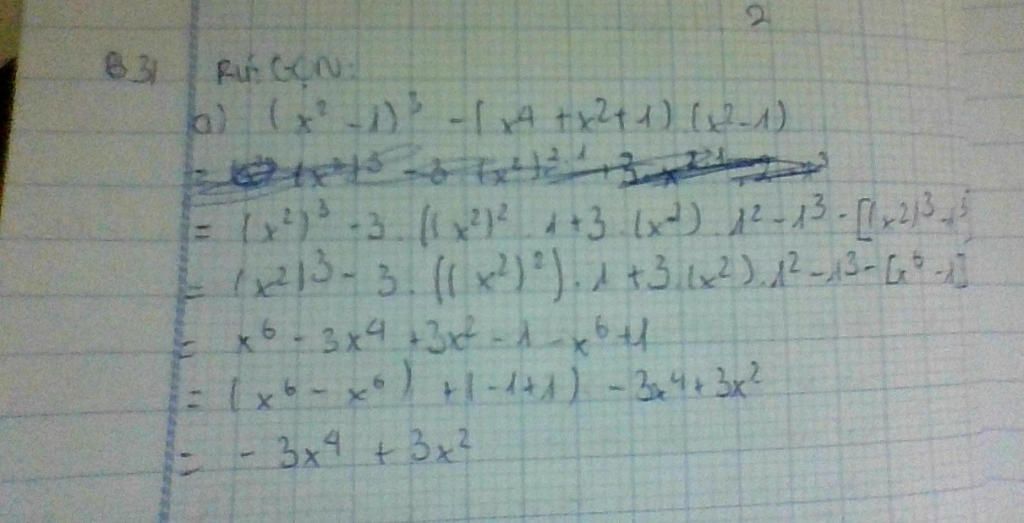 2
B 31 RÚT GỌN:
a) (x² - 1)³ - (x⁴ + x² + 1) (x² - 1)
= (x²)³ - 3 . ((x²)² . 1 + 3 . (x²) . 1² - 1³ - [(x²)³ - 1³]
= (x²)³ - 3 . ((x²)²) . 1 + 3 . (x²) . 1² - 1³ - [x⁶ - 1]
= x⁶ - 3x⁴ + 3x² - 1 - x⁶ + 1
= (x⁶ - x⁶) + (-1 + 1) - 3x⁴ + 3x²
= - 3x⁴ + 3x²